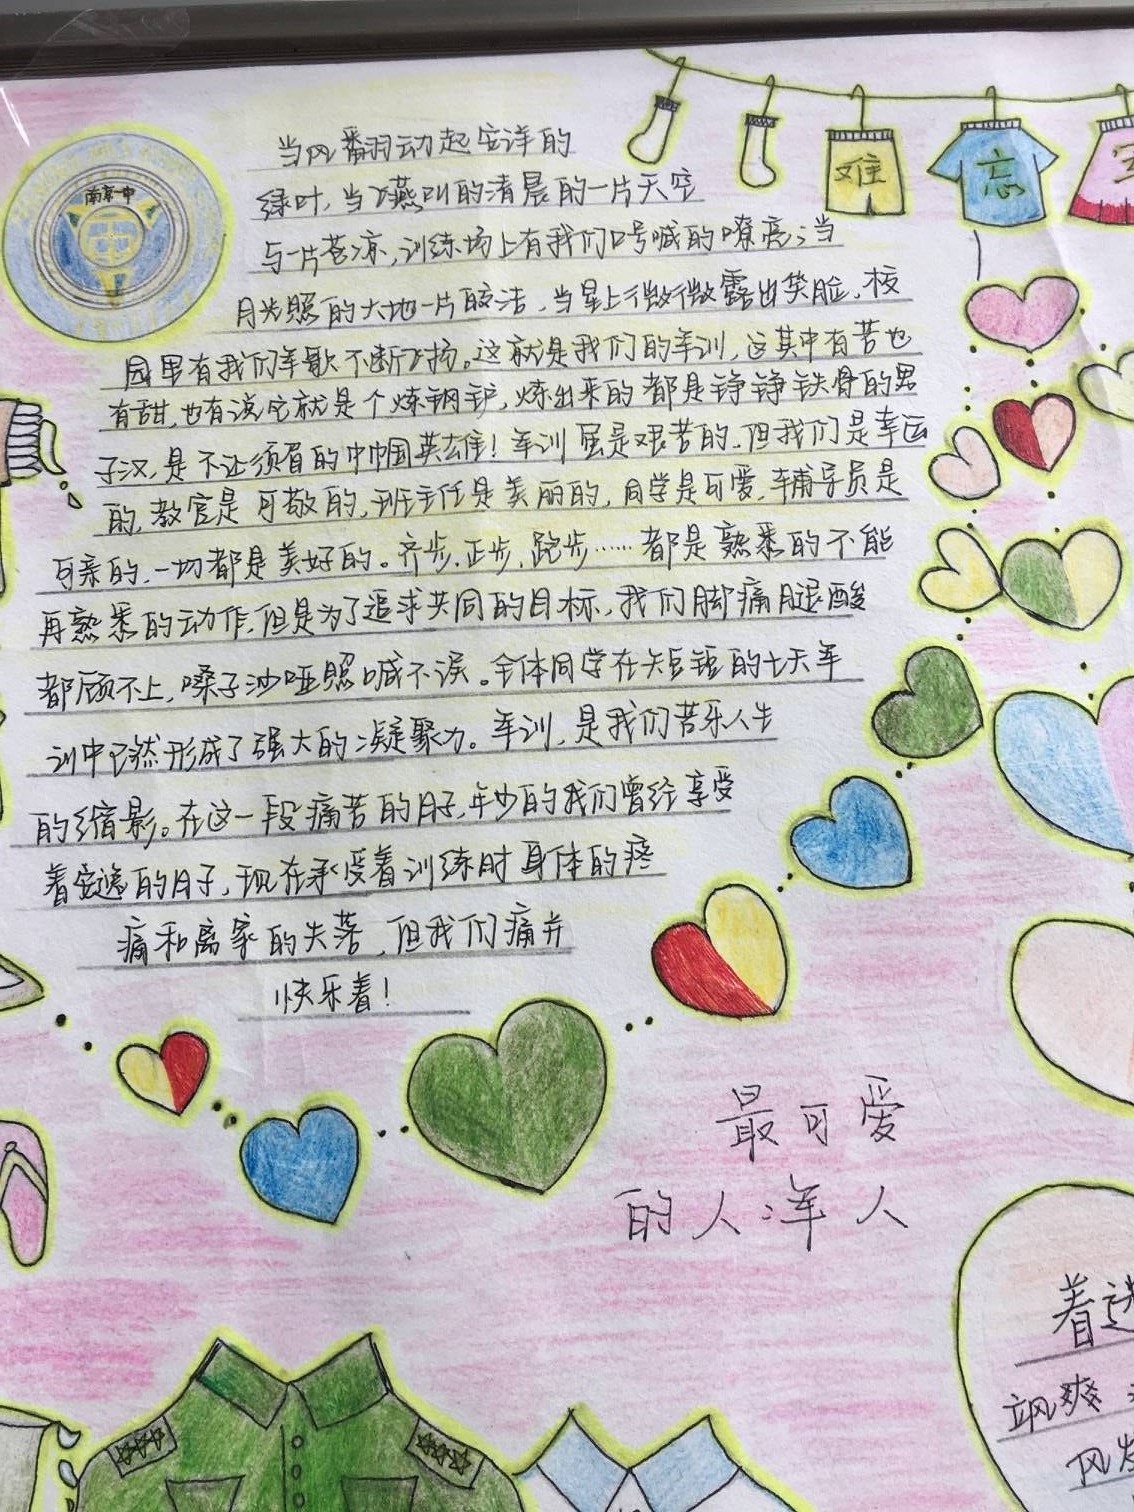 难
忘
南京一中
当风翻动起安详的
绿叶,当飞燕叫的清晨的一片天空
与一片苍凉,训练场上有我们口号喊的嘹亮;当
月光照的大地一片皎洁,当星上微微露出笑脸,校
园里有我们军歌不断飞扬。这就是我们的军训,这其中有苦也
有甜,也有说它就是个炼钢铲,炼出来的都是铮铮铁骨的男
子汉,是不让须眉的巾帼英雄!军训虽是艰苦的,但我们是幸运
的,教官是可敬的,班主任是美丽的,同学是可爱,辅导员是
可亲的,一切都是美好的。齐步,正步,跑步……都是熟悉的不能
再熟悉的动作,但是为了追求共同的目标,我们脚痛腿酸
都顾不上,嗓子沙哑照喊不误。全体同学在短短的七天军
训中已然形成了强大的凝聚力。军训,是我们苦乐人生
的缩影。在这一段痛苦的日子,年少的我们曾经享受
着安逸的日子,现在承受着训练时身体的疼
痛和离家的失落,但我们痛并
快乐着!
最可爱
的人:军人
着
飒爽
风